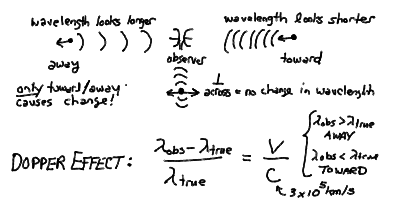 wavelength looks longer
wavelength looks shorter
away
observer
toward
only toward/away
causes change!
⊥
across = no change in wavelength
DOPPER EFFECT: (λobs - λtrue)/λtrue = V/C
λobs > λtrue
AWAY
λobs < λtrue
TOWARD
3×10⁵ km/s